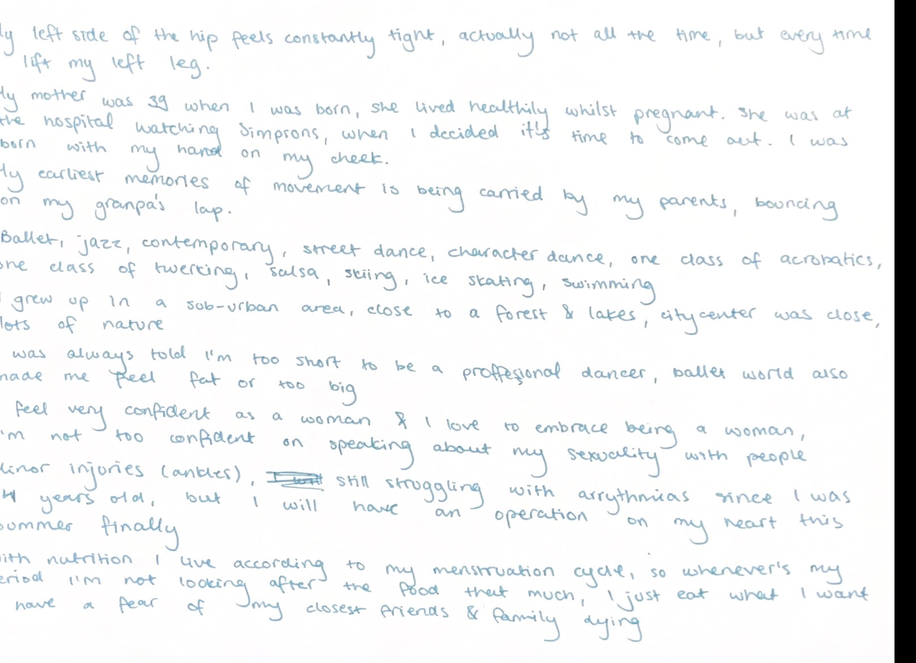 ly left side of the hip feels constantly tight, actually not all the time, but every time
lift my left leg.
ly mother was 39 when I was born, she lived healthily whilst pregnant. She was at
the hospital watching Simprons, when I decided it's time to come out. I was
born with my hand on my cheek.
ly earliest memories of movement is being carried by my parents, bouncing
on my granpa's lap.
Ballet, jazz, contemporary, street dance, character dance, one class of acrobatics,
one class of twerking, salsa, skiing, ice skating, swimming
I grew up in a sub-urban area, close to a forest & lakes, citycenter was close,
lots of nature
was always told I'm too short to be a proffesional dancer, ballet world also
made me feel fat or too big
feel very confident as a woman & I love to embrace being a woman,
'm not too confident on speaking about my sexuality with people
linor injuries (ankles), still struggling with arrythmias since I was
4 years old, but I will have an operation on my heart this
summer finally
ith nutrition I live according to my menstruation cycle, so whenever's my
eriod I'm not looking after the food that much, I just eat what I want
have a fear of my closest friends & family dying